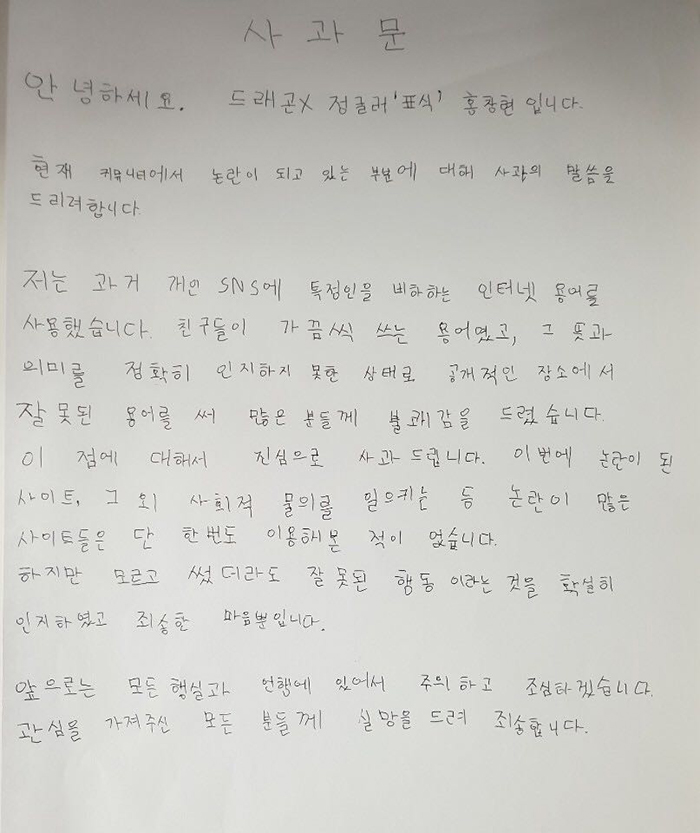 사과문
안녕하세요. 드래곤X 정글러 '표식' 홍창현 입니다.
현재 커뮤니티에서 논란이 되고 있는 부분에 대해 사과의 말씀을
드리려합니다
저는 과거 개인 SNS에 특정인을 비하하는 인터넷 용어를
사용했습니다. 친구들이 가끔씩 쓰는 용어였고, 그 뜻과
의미를 정확히 인지하지 못한 상태로 공개적인 장소에서
잘못된 용어를 써 많은 분들께 불쾌감을 드렸습니다.
이 점에 대해서 진심으로 사과드립니다. 이번에 논란이 된
사이트, 그 외 사회적 물의를 일으키는 등 논란이 많은
사이트들은 단 한번도 이용해본 적이 없습니다.
하지만 모르고 썼더라도 잘못된 행동이라는 것을 확실히
인지하였고 죄송한 마음뿐입니다.
앞으로는 모든 행실과 언행에 있어서 주의하고 조심하겠습니다.
관심을 가져주신 모든 분들께 실망을 드려 죄송합니다.